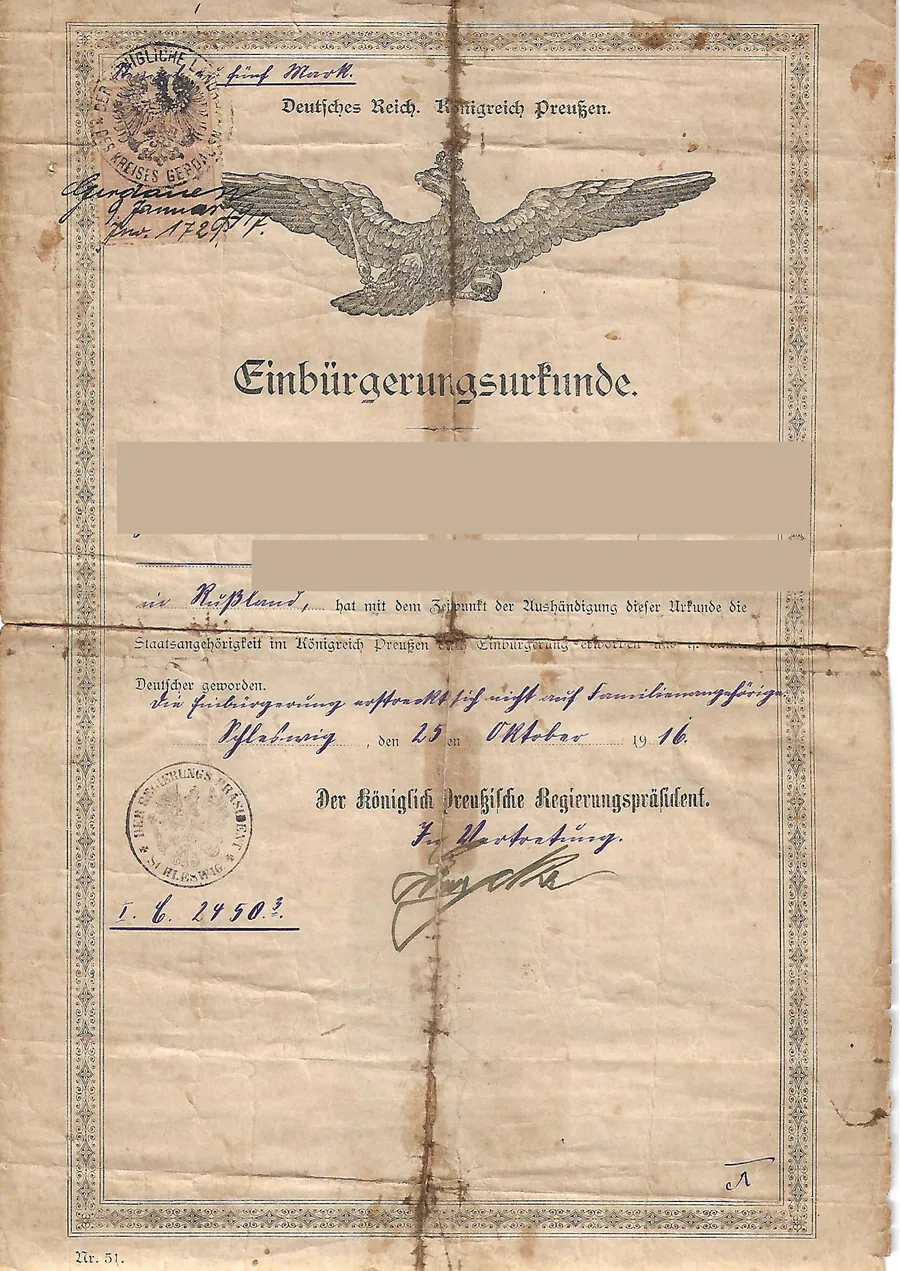 fünf Mark.
DER KÖNIGLICHE LANDRAT
DES KREISES GERDAUEN
Deutsches Reich. Königreich Preußen.
Gerdauen
9 Januar 17.
Jnr. 1729/17.
Einbürgerungsurkunde.
in Rußland, hat mit dem Zeitpunkt der Aushändigung dieser Urkunde die
Staatsangehörigkeit im Königreich Preußen durch Einbürgerung erworben und ist damit
Deutscher geworden.
Die Einbürgerung erstreckt sich nicht auf Familienangehörige.
Schleswig, den 25 en Oktober 1916.
DER REGIERUNGS PRÄSIDENT
* SCHLESWIG *
Der Königlich Preußische Regierungspräsident.
In Vertretung.
I. C. 2450.3.
Nr. 51.